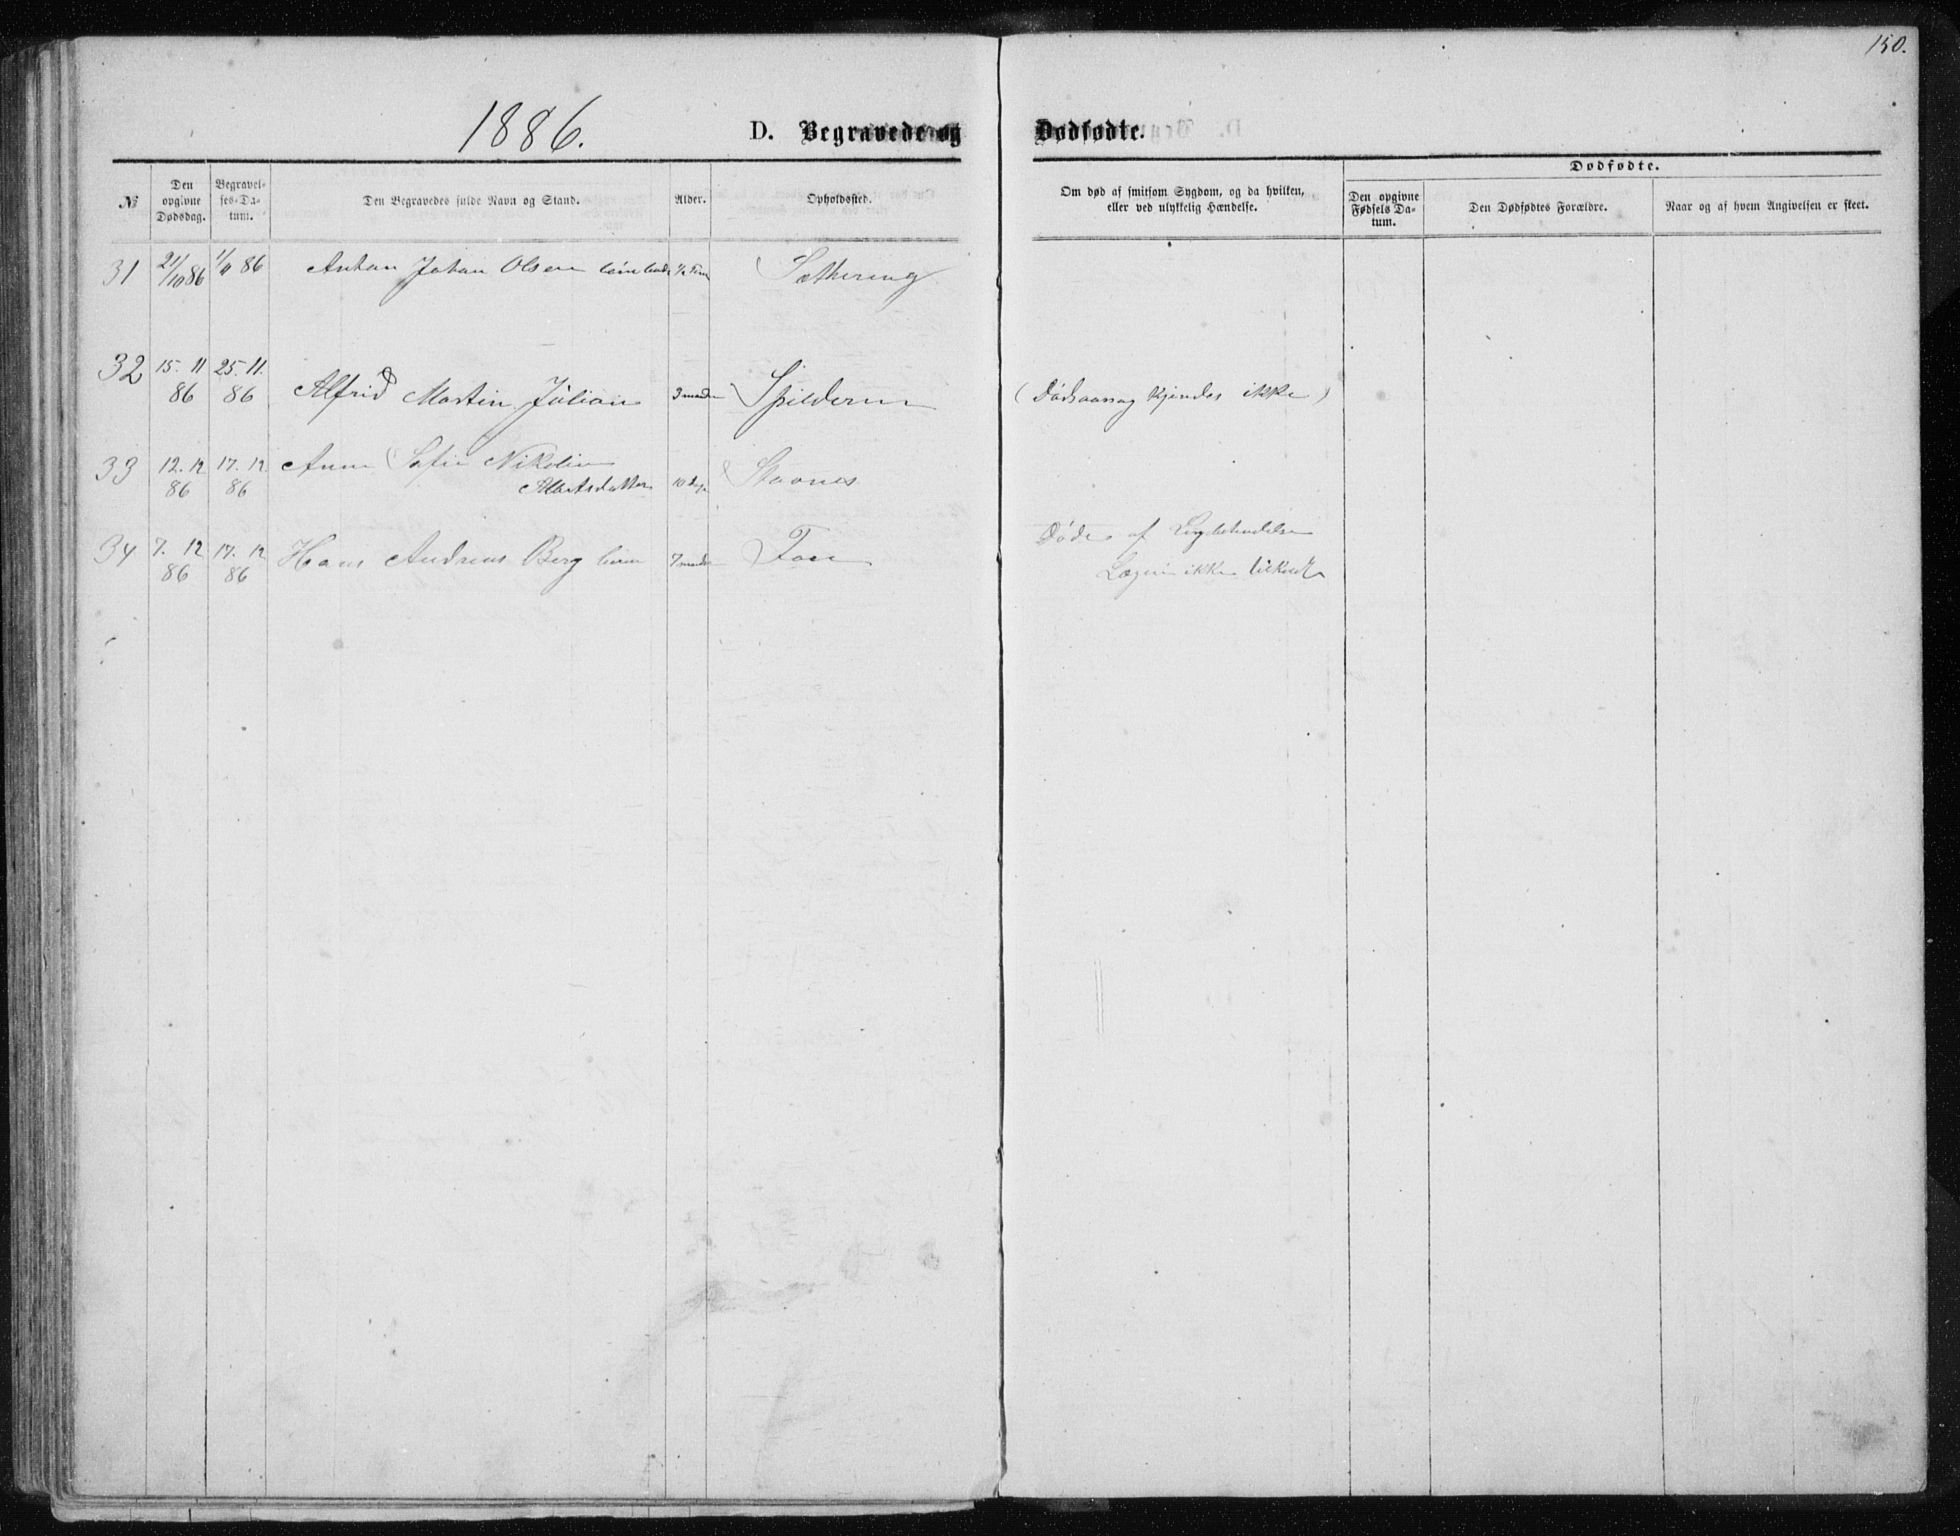 150.
1886.
D. Begravede og Dødfødte.
Dødfødte.
№
Den opgivne Dødsdag.
Begravelses-Datum.
Den Begravedes fulde Navn og Stand.
Alder.
Opholdssted.
Om død af smitsom Sygdom, og da hvilken, eller ved ulykkelig Hændelse.
Den opgivne Fødsels Datum.
Den Dødfødtes Forældre.
Naar og af hvem Angivelsen er skeet.
31 21/10 86 1/11 86 Anton Johan Olsen ½ Time Sæthering
32 15. 11 86 25. 11. 86 Alfrid Martin Julian 3 maaned Spildern (Dødsaarsag kjendes ikke)
33 12. 12 86 17. 12 86 Anne Sofie Nikolin
10 Dage Stavnes
34 7. 12 86 17. 12 86 Hans Andreas Berg 7 maaned
Døde af
Lægen ikke tilkaldt